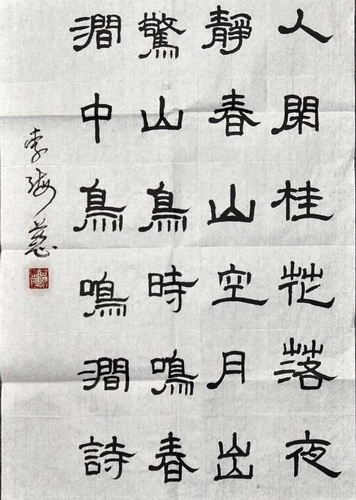 人閑桂花落夜
靜春山空月出
驚山鳥時鳴春
澗中鳥鳴澗詩
李海慈